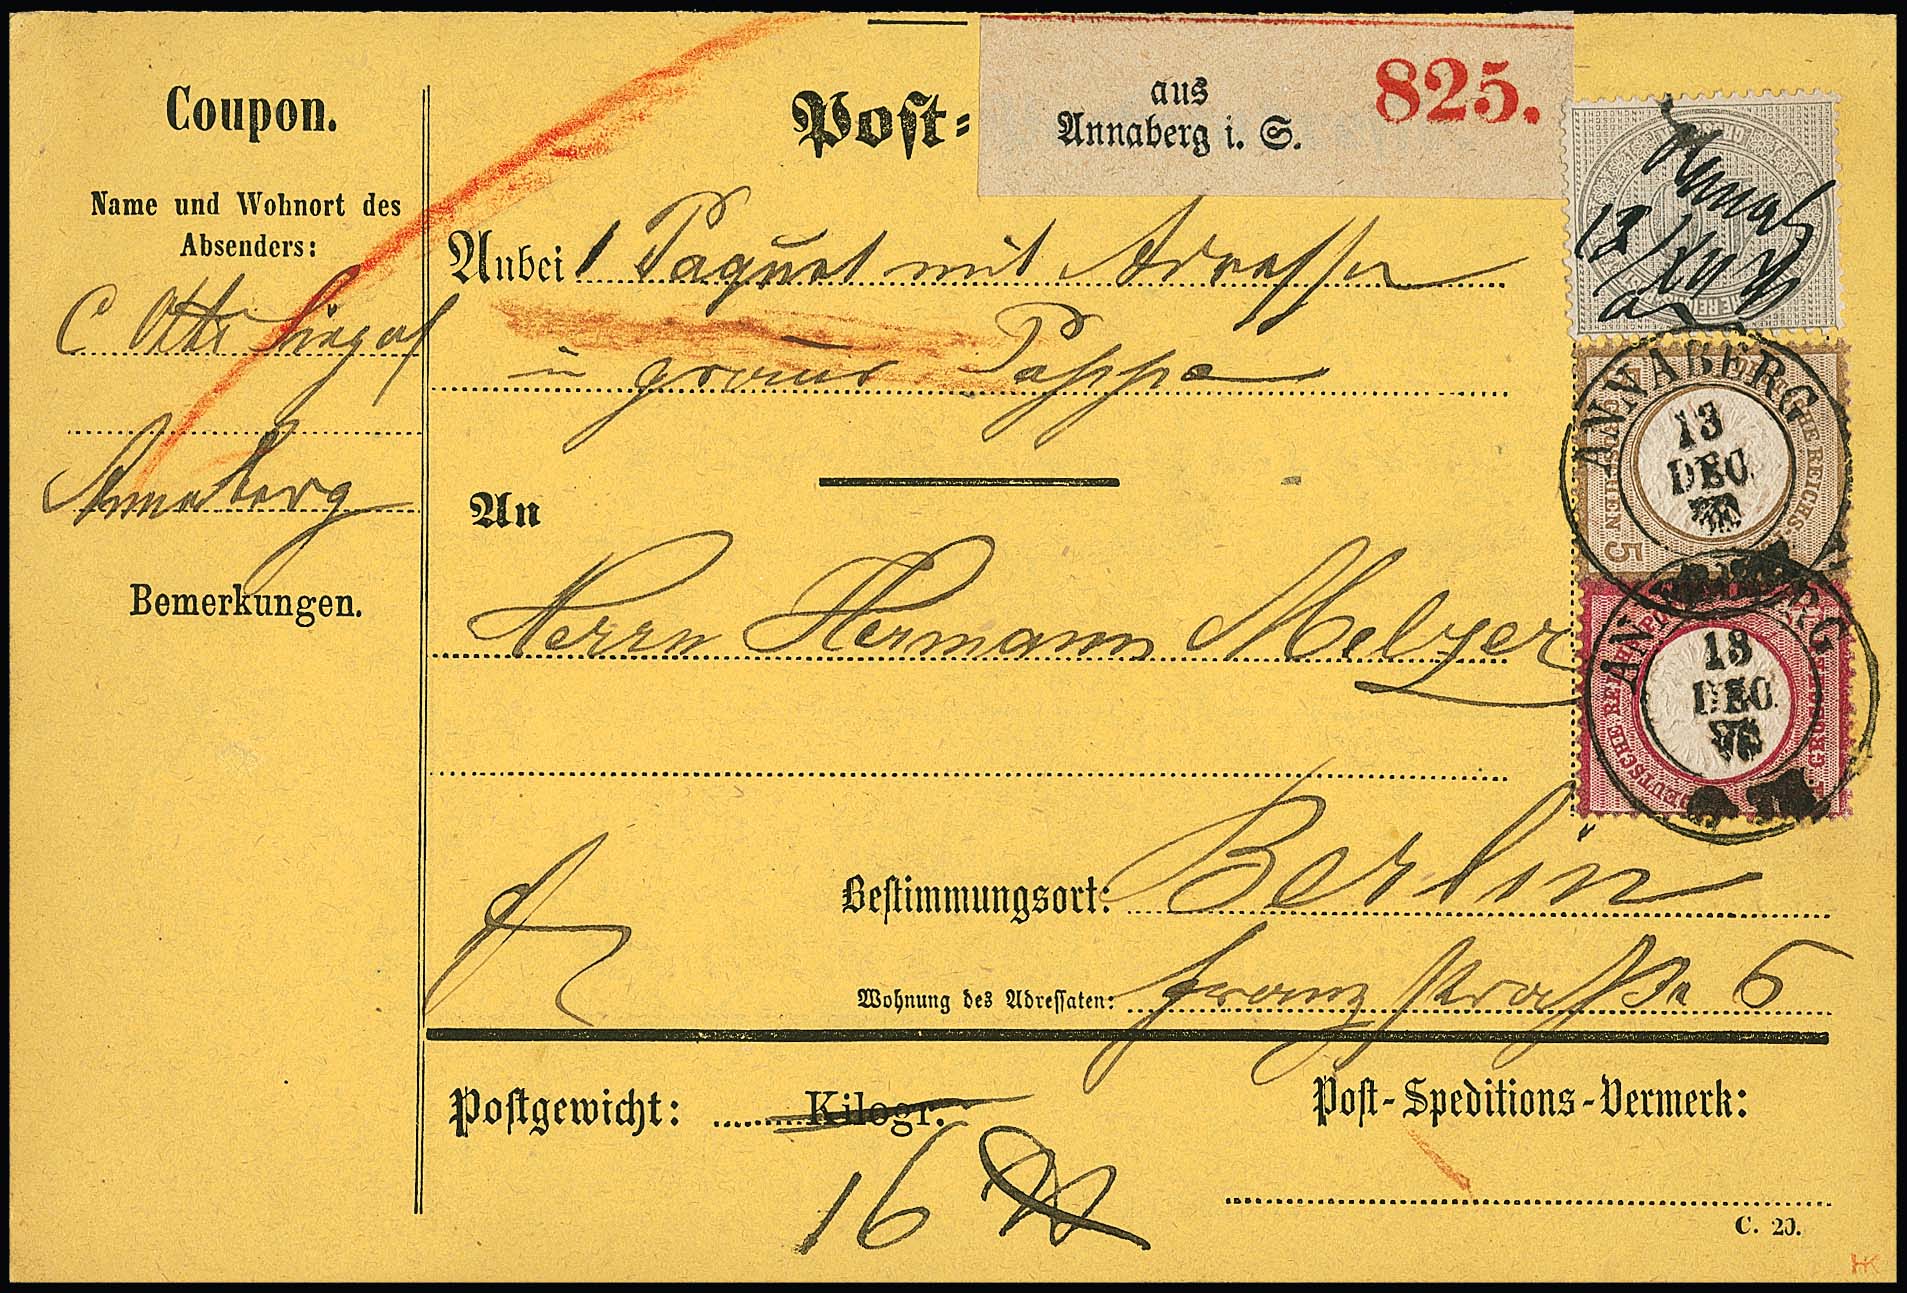 Coupon.
Name und Wohnort des
Absenders:
C Otto
Annaberg
Bemerkungen.
Post-
aus
Annaberg i. S.
825.
Anbei 1 Paquet mit Adresse
in grauer Pappe
An
Herrn Hermann Melzer
Bestimmungsort: Berlin
Wohnung des Adressaten: Franz Straße 6
Postgewicht: Kilogr.
16
Post-Speditions-Vermerk:
C. 20.
HK
13/XII
ANNABERG
13
DEC
5
DEUTSCHE REICHS
ANNABERG
13
DEC
DEUTSCHE REICHS